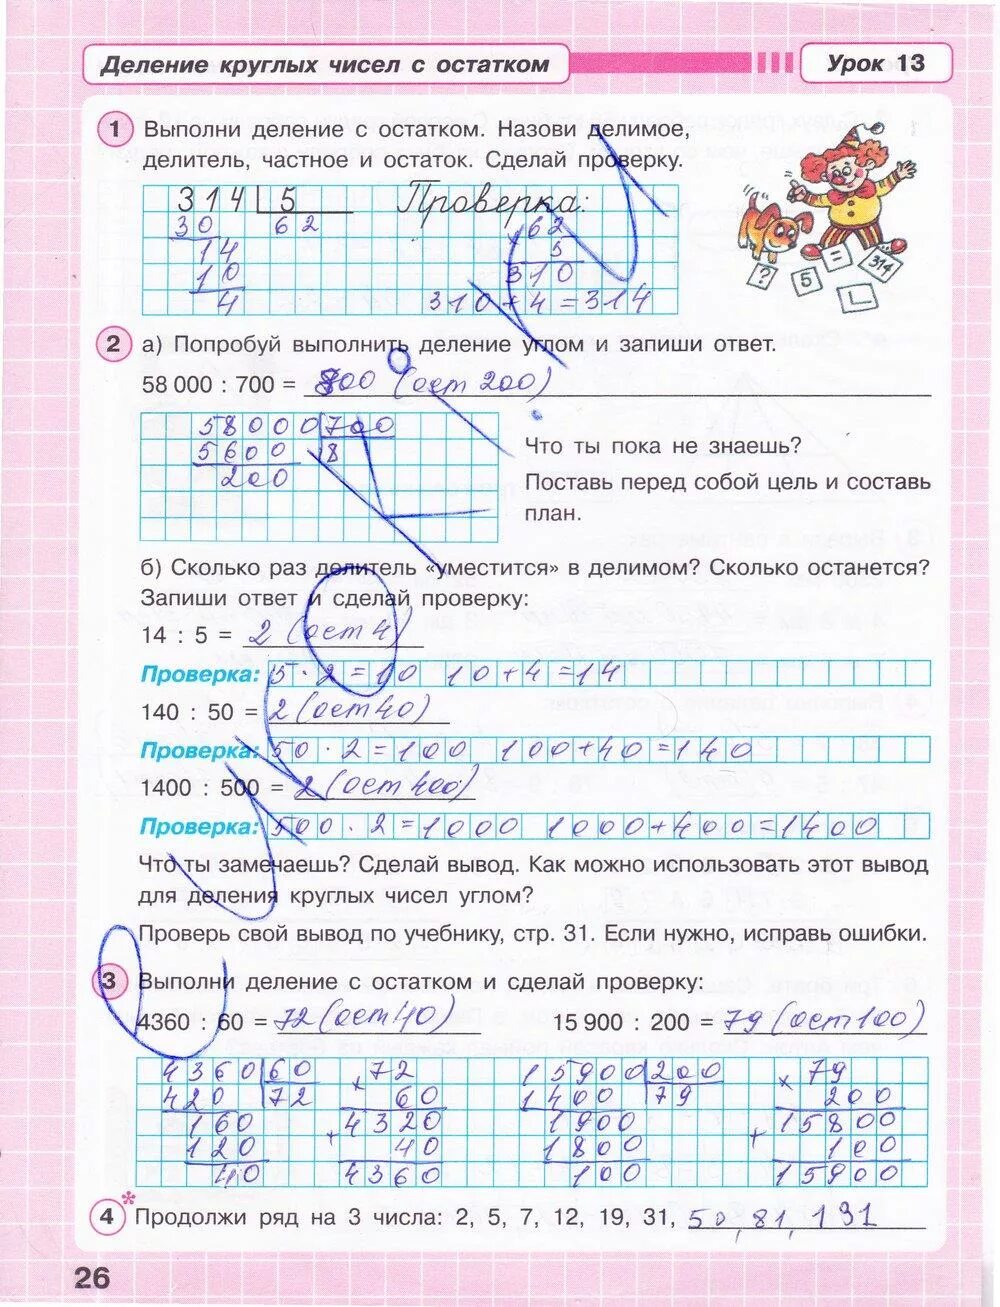 Деление круглых чисел с остатком
Урок 13
1 Выполни деление с остатком. Назови делимое,
делитель, частное и остаток. Сделай проверку.
314 5 Проверка:
30 62 62
14 5
10 310
4 310 + 4 = 314
? 5 = 314
2 а) Попробуй выполнить деление углом и запиши ответ.
58 000 : 700 = 800 (ост 200)
58000 700
5600 8
200
Что ты пока не знаешь?
Поставь перед собой цель и составь
план.
б) Сколько раз делитель «уместится» в делимом? Сколько останется?
Запиши ответ и сделай проверку:
14 : 5 = 2 (ост 4)
Проверка: 5 · 2 = 10 10 + 4 = 14
140 : 50 = 2 (ост 40)
Проверка: 50 · 2 = 100 100 + 40 = 140
1400 : 500 = 2 (ост 400)
Проверка: 500 · 2 = 1000 1000 + 400 = 1400
Что ты замечаешь? Сделай вывод. Как можно использовать этот вывод
для деления круглых чисел углом?
Проверь свой вывод по учебнику, стр. 31. Если нужно, исправь ошибки.
3 Выполни деление с остатком и сделай проверку:
4360 : 60 = 72 (ост 40) 15 900 : 200 = 79 (ост 100)
4360 60 × 72 15900 200 × 79
420 72 60 1400 79 200
160 + 4320 1900 + 15800
120 40 1800 100
40 4360 100 15900
4* Продолжи ряд на 3 числа: 2, 5, 7, 12, 19, 31, 50, 81, 131
26